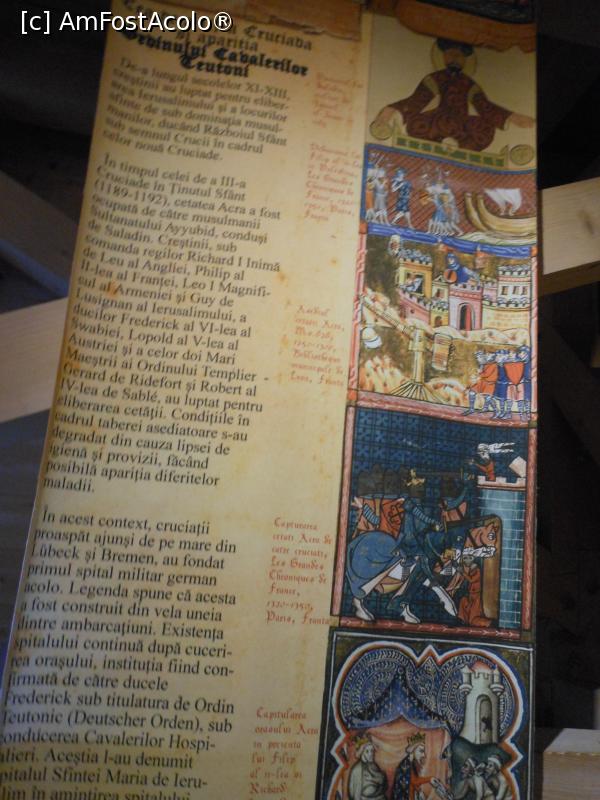 [c] AmFostAcolo®
Cruciada
apariția
Ordinului Cavalerilor
Teutoni
De-a lungul secolelor XI-XIII,
creștinii au luptat pentru eliber-
area Ierusalimului și a locurilor
sfinte de sub dominația musul-
manilor, ducând Războiul Sfânt
sub semnul Crucii în cadrul
celor nouă Cruciade.
În timpul celei de a III-a
Cruciade în Ținutul Sfânt
(1189-1192), cetatea Acra a fost
ocupată de către musulmanii
Sultanatului Ayyubid, conduși
de Saladin. Creștinii, sub
comanda regilor Richard I Inimă
de Leu al Angliei, Philip al
II-lea al Franței, Leo I Magnifi-
cul al Armeniei și Guy de
Lusignan al Ierusalimului, a
ducilor Frederick al VI-lea al
Swabiei, Lopold al V-lea al
Austriei și a celor doi Mari
Maeștrii ai Ordinului Templier -
Gerard de Ridefort și Robert al
IV-lea de Sablé, au luptat pentru
eliberarea cetății. Condițiile în
cadrul taberei asediatoare s-au
degradat din cauza lipsei de
igienă și provizii, făcând
posibilă apariția diferitelor
maladii.
În acest context, cruciații
proaspăt ajunși de pe mare din
Lübeck și Bremen, au fondat
primul spital militar german
acolo. Legenda spune că acesta
a fost construit din vela uneia
dintre ambarcațiuni. Existența
spitalului continuă după cuceri-
rea orașului, instituția fiind con-
firmată de către ducele
Frederick sub titulatura de Ordin
Teutonic (Deutscher Orden), sub
conducerea Cavalerilor Hospi-
talieri. Aceștia l-au denumit
Spitalul Sfintei Maria de Ieru-
salim în amintirea spitalului
Asediul
cetății Acra,
1250-1300,
Bibliothèque
municipale de
Lyon, Franța
Capturarea
cetății Acra de
către cruciați,
Les Grandes
Chroniques de
France,
1320-1350,
Paris, Franța
Capitularea
orașului Acra
în prezența
lui Filip
al II-lea și
Richard